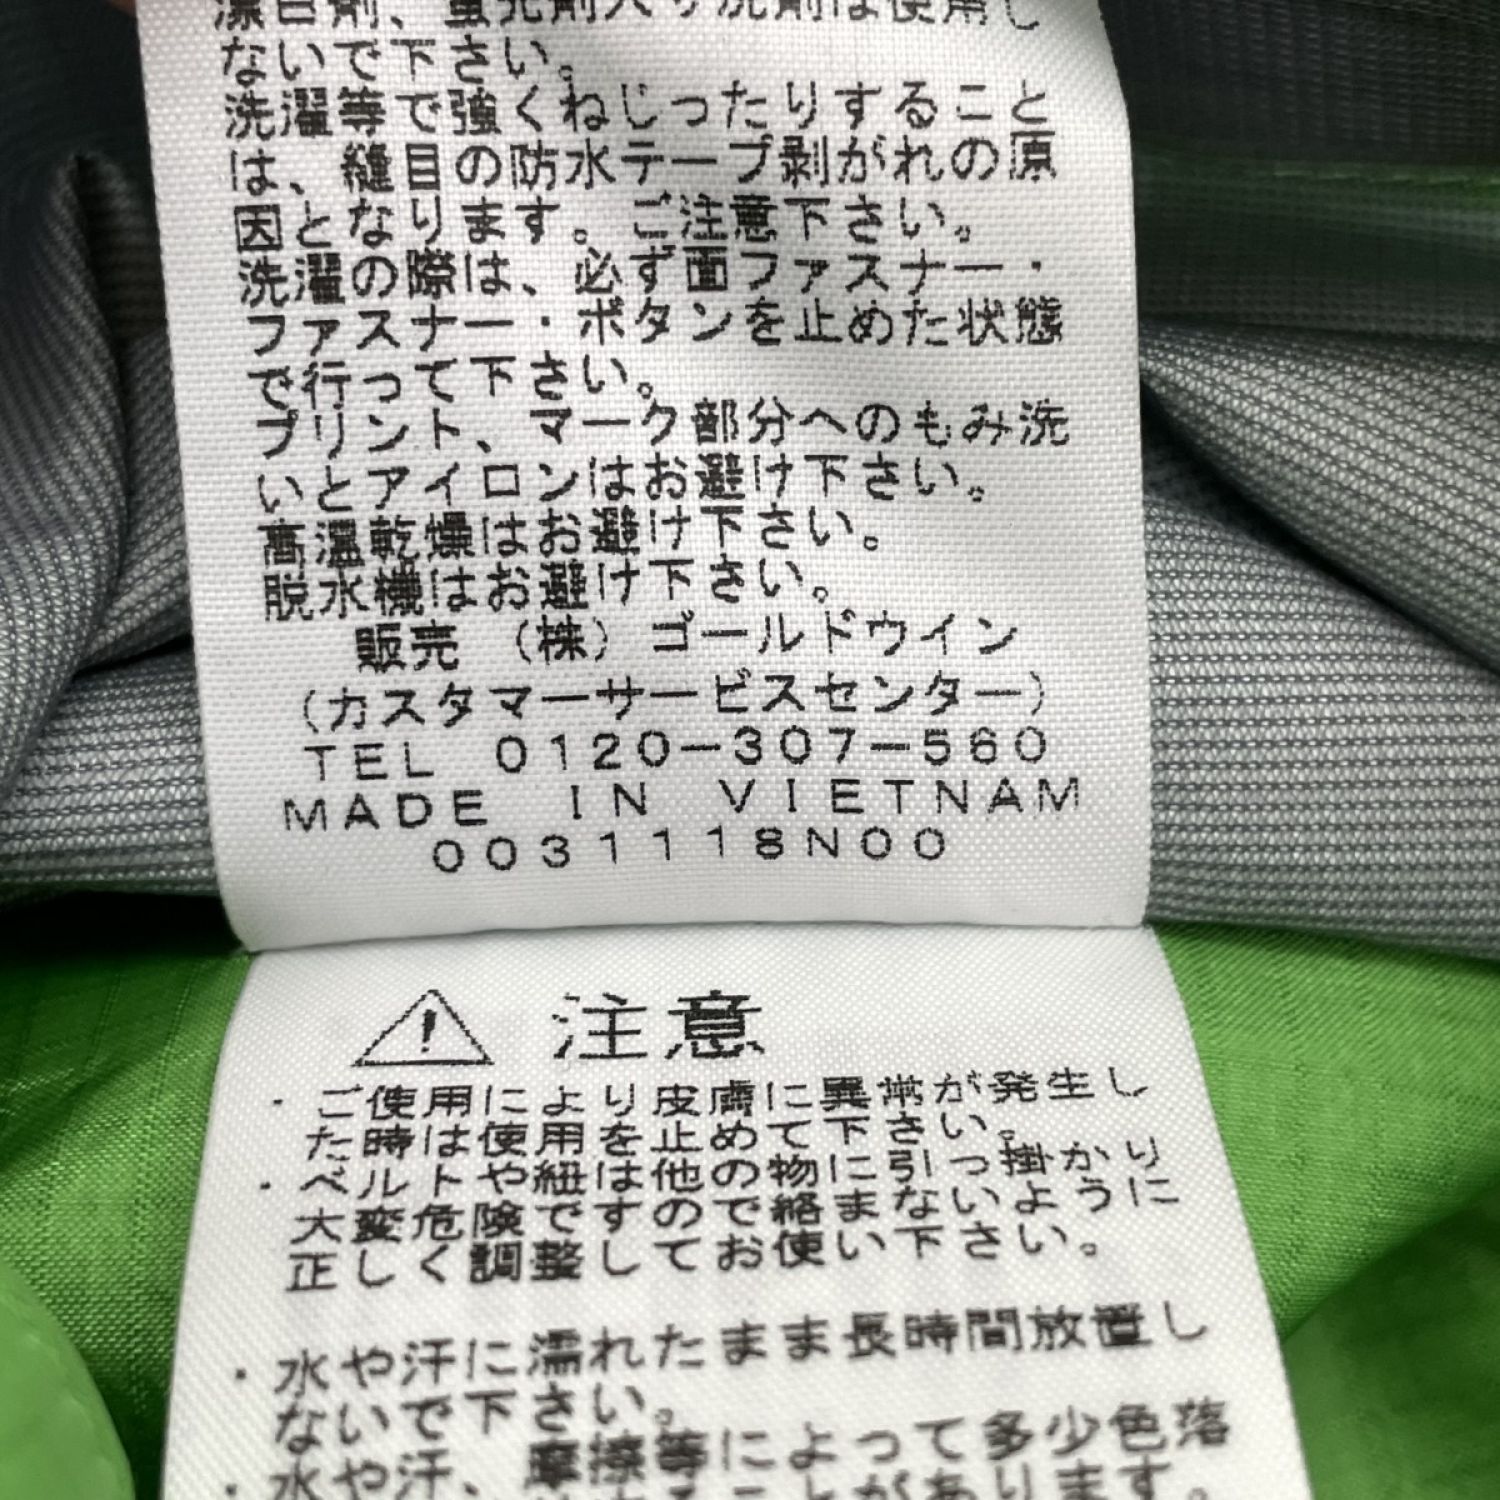 漂白剤、蛍光剤入り洗剤は使用し
ないで下さい。
洗濯等で強くねじったりすること
は、縫目の防水テープ剥がれの原
因となります。ご注意下さい。
洗濯の際は、必ず面ファスナー・
ファスナー・ボタンを止めた状態
で行って下さい。
プリント、マーク部分へのもみ洗
いとアイロンはお避け下さい。
高温乾燥はお避け下さい。
脱水機はお避け下さい。
販売 (株) ゴールドウイン
(カスタマーサービスセンター)
TEL 0120-307-560
MADE IN VIETNAM
0031118N00
注意
・ご使用により皮膚に異常が発生し
た時は使用を止めて下さい。
・ベルトや紐は他の物に引っ掛かり
大変危険ですので絡まないように
正しく調整してお使い下さい。
・水や汗に濡れたまま長時間放置し
ないで下さい。
・水や汗、摩擦等によって多少色落
することがあります。